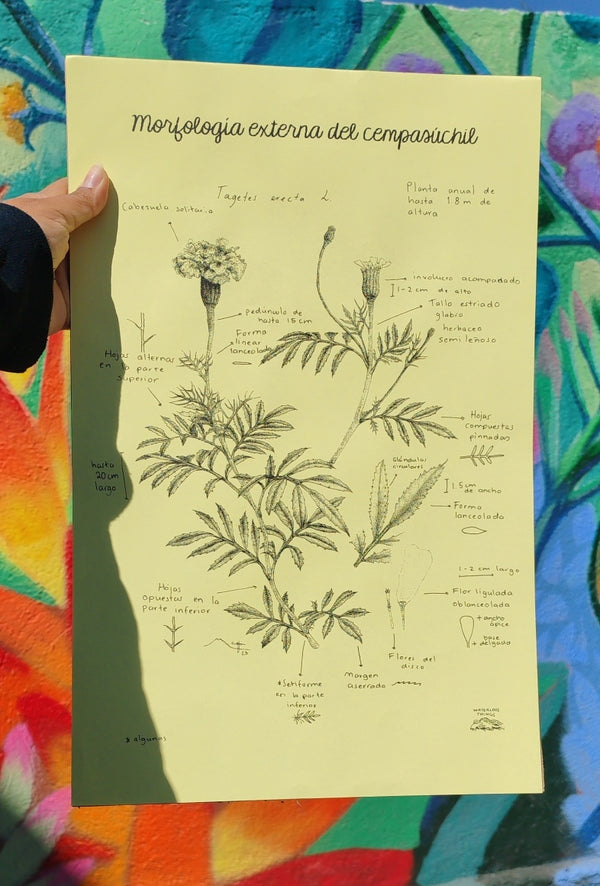 Morfología externa del cempasúchil
Tagetes erecta L.
Planta anual de
hasta 1.8 m de
altura
Cabezuela solitaria
involucro acampanado
1-2 cm de alto
Tallo estriado
glabro
herbaceo
semi leñoso
pedúnculo de
hasta 15 cm
Forma
linear
lanceolada
Hojas alternas
en la parte
superior
Hojas
compuestas
pinnadas
hasta
20 cm
largo
glándulas
circulares
1.5 cm
de ancho
Forma
lanceolada
1-2 cm largo
Flor ligulada
oblanceolada
+ ancho
ápice
base
+ delgado
Hojas
opuestas en la
parte inferior
Flores del
disco
Margen
aserrado
*Setiforme
en la parte
inferior
* algunas
WATERLILIES
THINGS